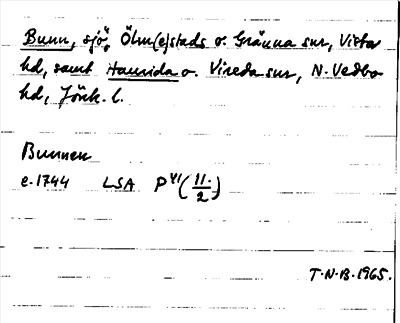 Bunn, sjö, Ölm(e)stads o. Gränna snr, Vista
hd, samt Haurida o. Vireda snr, N. Vedbo
hd, Jönk. l.
Bunnen
e. 1744 LSA P VI (11/2)
T.N.B. 1965.